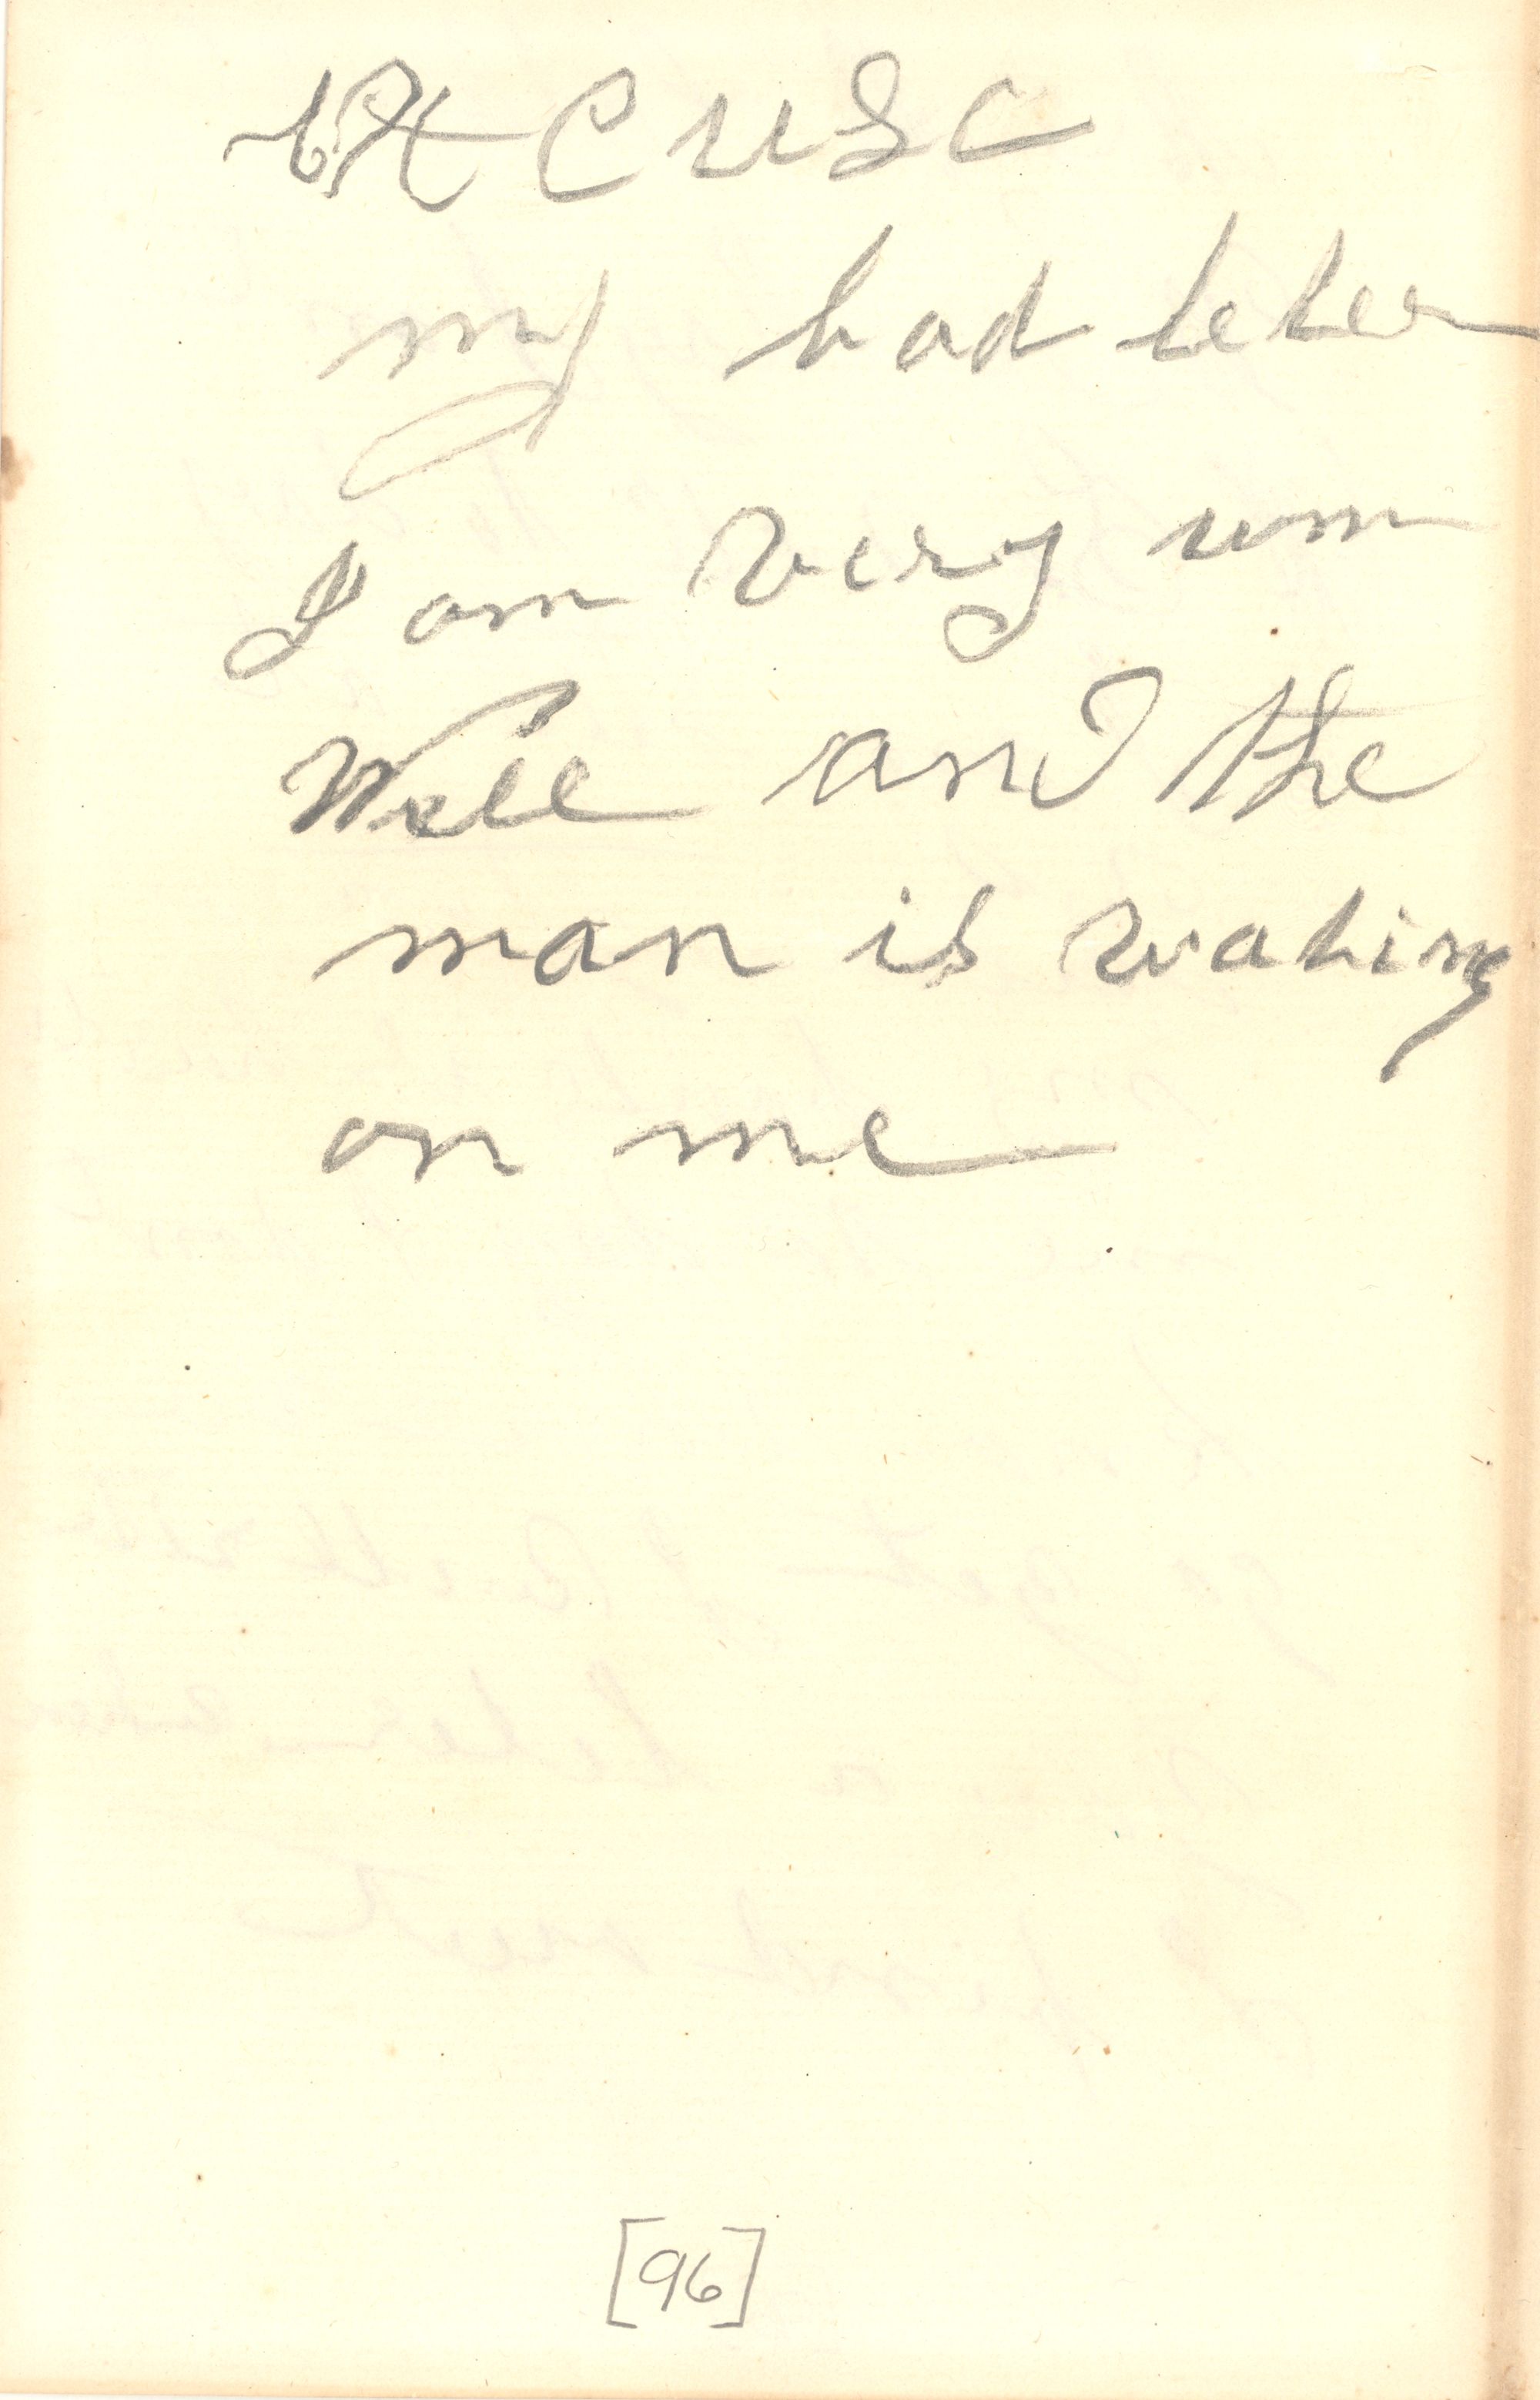 Excuse
my bad leter
I am very un
Well and the
man is wating
on me
[96]